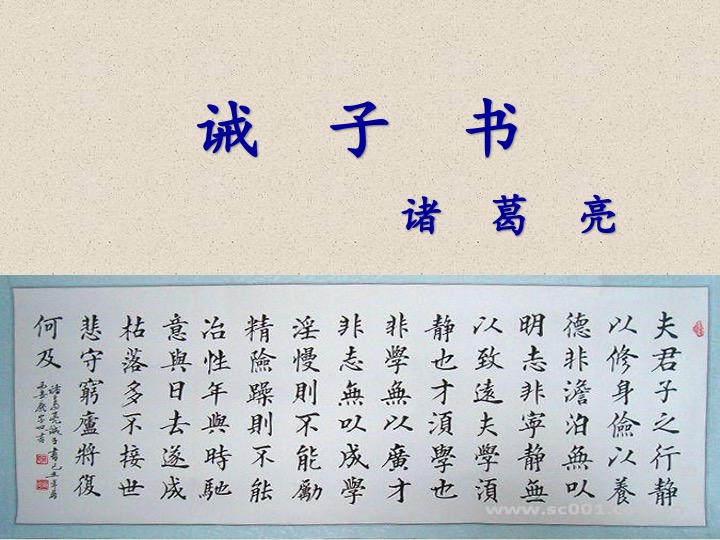 诫 子 书
诸 葛 亮
夫君子之行静
以修身儉以養
德非澹泊無以
明志非寧静無
以致遠夫學湏
静也才湏學也
非學無以廣才
非志無以成學
淫慢則不能勵
精險躁則不能
冶性年與時馳
意與日去遂成
枯落多不接世
悲守窮廬將復
何及
諸葛亮誡子書